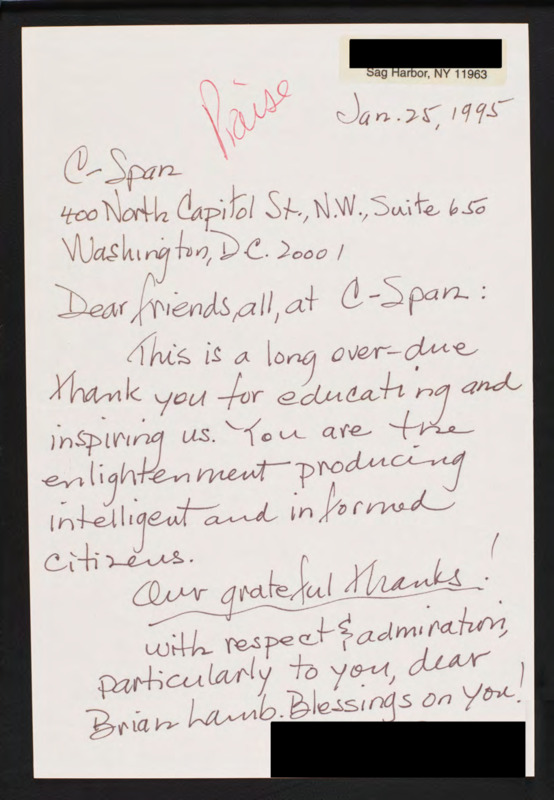 Sag Harbor, NY 11963
Praise
Jan. 25, 1995
C-Span
400 North Capitol St., N.W., Suite 650
Washington, D.C. 20001
Dear friends, all, at C-Span:
This is a long over-due
thank you for educating and
inspiring us. You are the
enlightenment producing
intelligent and informed
citizens.
Our grateful thanks!
with respect & admiration,
particularly to you, dear
Brian Lamb. Blessings on you!